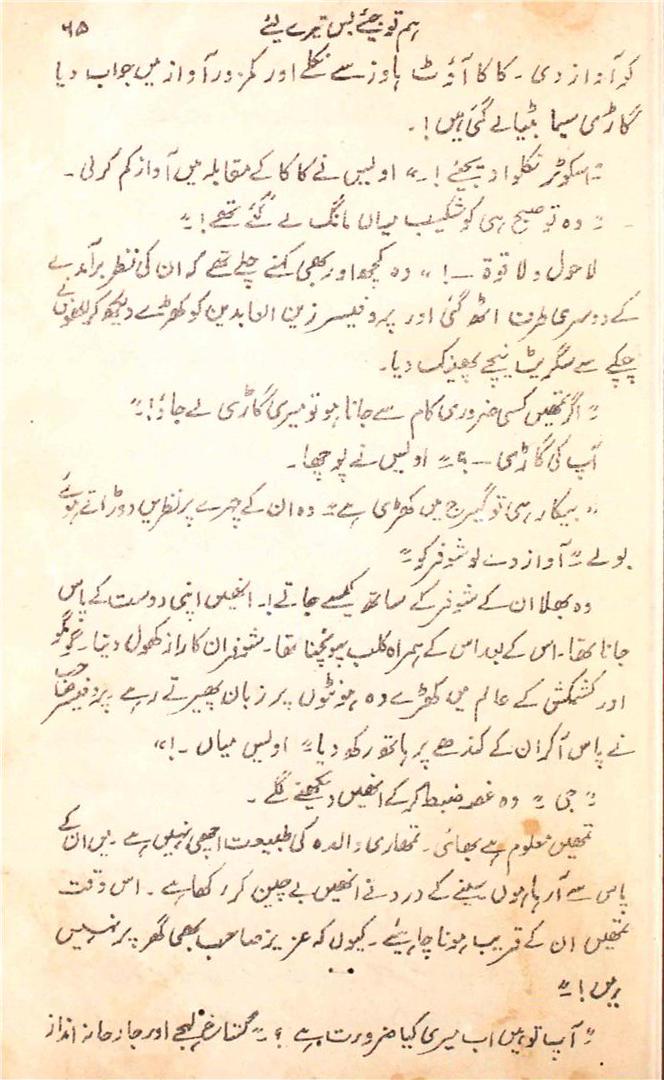 ہم تو جئے بس تیرے لئے ۶۵
کر آواز دی ۔ کاکا آؤٹ ہاوز سے نکلے اور کمزور آواز میں جواب دیا
گاڑی سیما بٹیا لے گئی ہیں! ۔
"اسکوٹر نکلوا دیجئے! ۔" اویس نے کاکا کے مقابلہ میں آواز کم کرلی ۔
"وہ تو صبح ہی کو شکیب میاں مانگ لے گئے تھے! ۔"
لاحول ولا قوۃ ۔! " وہ کچھ اور بھی کہنے چلے تھے کہ ان کی نظر برآمدے
کے دوسری طرف اٹھ گئی اور پروفیسر زین العابدین کو کھڑے دیکھ کر انھوں نے
چپکے سے سگریٹ نیچے پھینک دیا۔
"اگر تمھیں کسی ضروری کام سے جانا ہو تو میری گاڑی لے جاؤ! ۔"
آپ کی گاڑی ۔ ؟" اویس نے پوچھا۔
"بیکار ہی تو گیرج میں کھڑی ہے" وہ ان کے چہرے پر نظریں دوڑاتے ہوئے
بولے "آواز دے لو شوفر کو"
وہ بھلا ان کے شوفر کے ساتھ کیسے جاتے!۔ انھیں اپنی دوست کے پاس
جانا تھا۔ اس کے بعد اس کے ہمراہ کلب پہونچنا تھا۔ شوفر ان کا راز کھول دیتا۔ گومگو
اور کشمکش کے عالم میں کھڑے وہ ہونٹوں پر زبان پھیرتے رہے پروفیسر صاحب
نے پاس آکر ان کے کندھے پر ہاتھ رکھ دیا" اویس میاں ۔!"
"جی" وہ غصہ ضبط کرکے انھیں دیکھنے لگے ۔
تمھیں معلوم ہے بھائی۔ تمھاری والدہ کی طبیعت اچھی نہیں ہے ۔ میں ان کے
پاس سے آرہا ہوں سینے کے درد نے انھیں بے چین کر رکھا ہے ۔ اس وقت
تمھیں ان کے قریب ہونا چاہیئے ۔ کیوں کہ عزیز صاحب بھی گھر پر نہیں
ہیں! ۔"
"آپ تو ہیں اب میری کیا ضرورت ہے ؟" گستاخ لہجے اور جارحانہ انداز